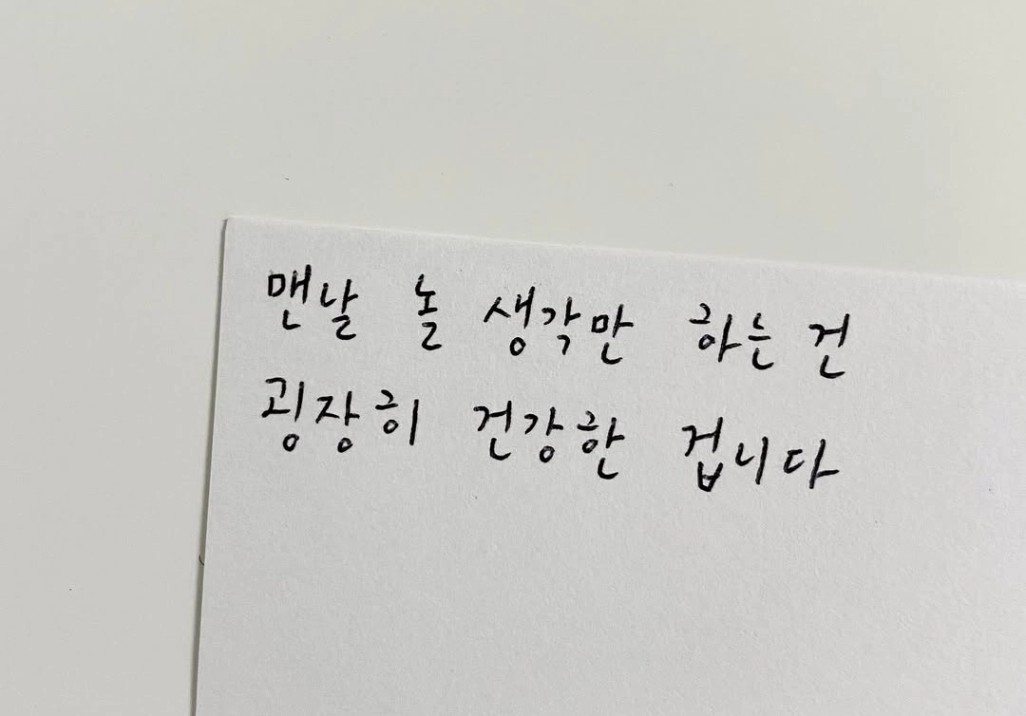 맨날 놀 생각만 하는 건
굉장히 건강한 겁니다